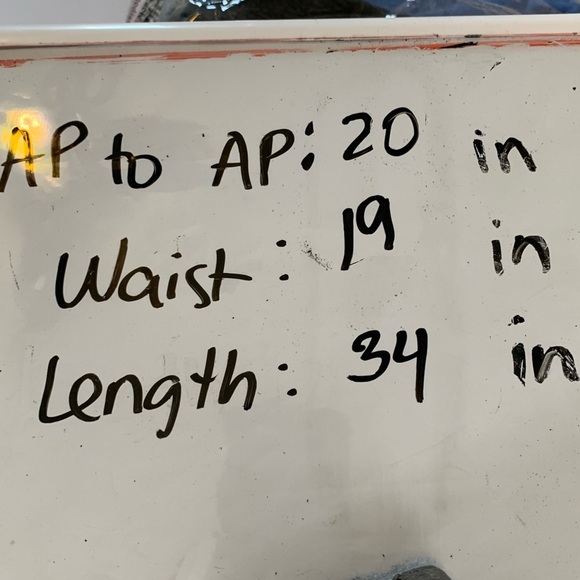 AP to AP: 20 in
Waist: 19 in
Length: 34 in